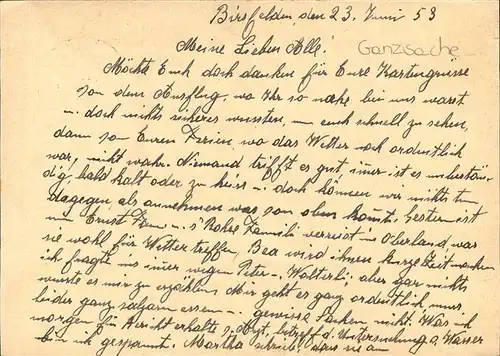 Birsfelden, den 23. Juni 53
Meine Lieben Alle!
Ganzsache
Möchte Euch doch danken für Eure Kartengrüsse
von dem Ausflug, wo Ihr so nahe bei uns warst
u. doch nichts sicheres wussten, um euch schnell zu sehen,
dann von Euren Ferien, wo das Wetter noch ordentlich
war, nicht wahr. Niemand trifft es gut immer ist es unbestän-
dig bald kalt oder zu heiss - doch können wir nichts tun
dagegen als annehmen was von oben kommt. Gestern ist
nun Ernst u. s' Familie verreist ins Oberland, was
sie wohl für Wetter treffen, Bea wird ihnen kurze Zeit machen
ich fragte ins immer wegen Peter u. Walterli, aber gar nichts
wusste es mir zu erzählen. Mir geht es ganz ordentlich muss
leider ganz salzarm essen u. gewisse Sachen nicht. Was ich
morgen für Bericht erhalte v. Arzt betreff d. Untersuchung Wasser
bin ich gespannt. Martha schrieb, dass sie am